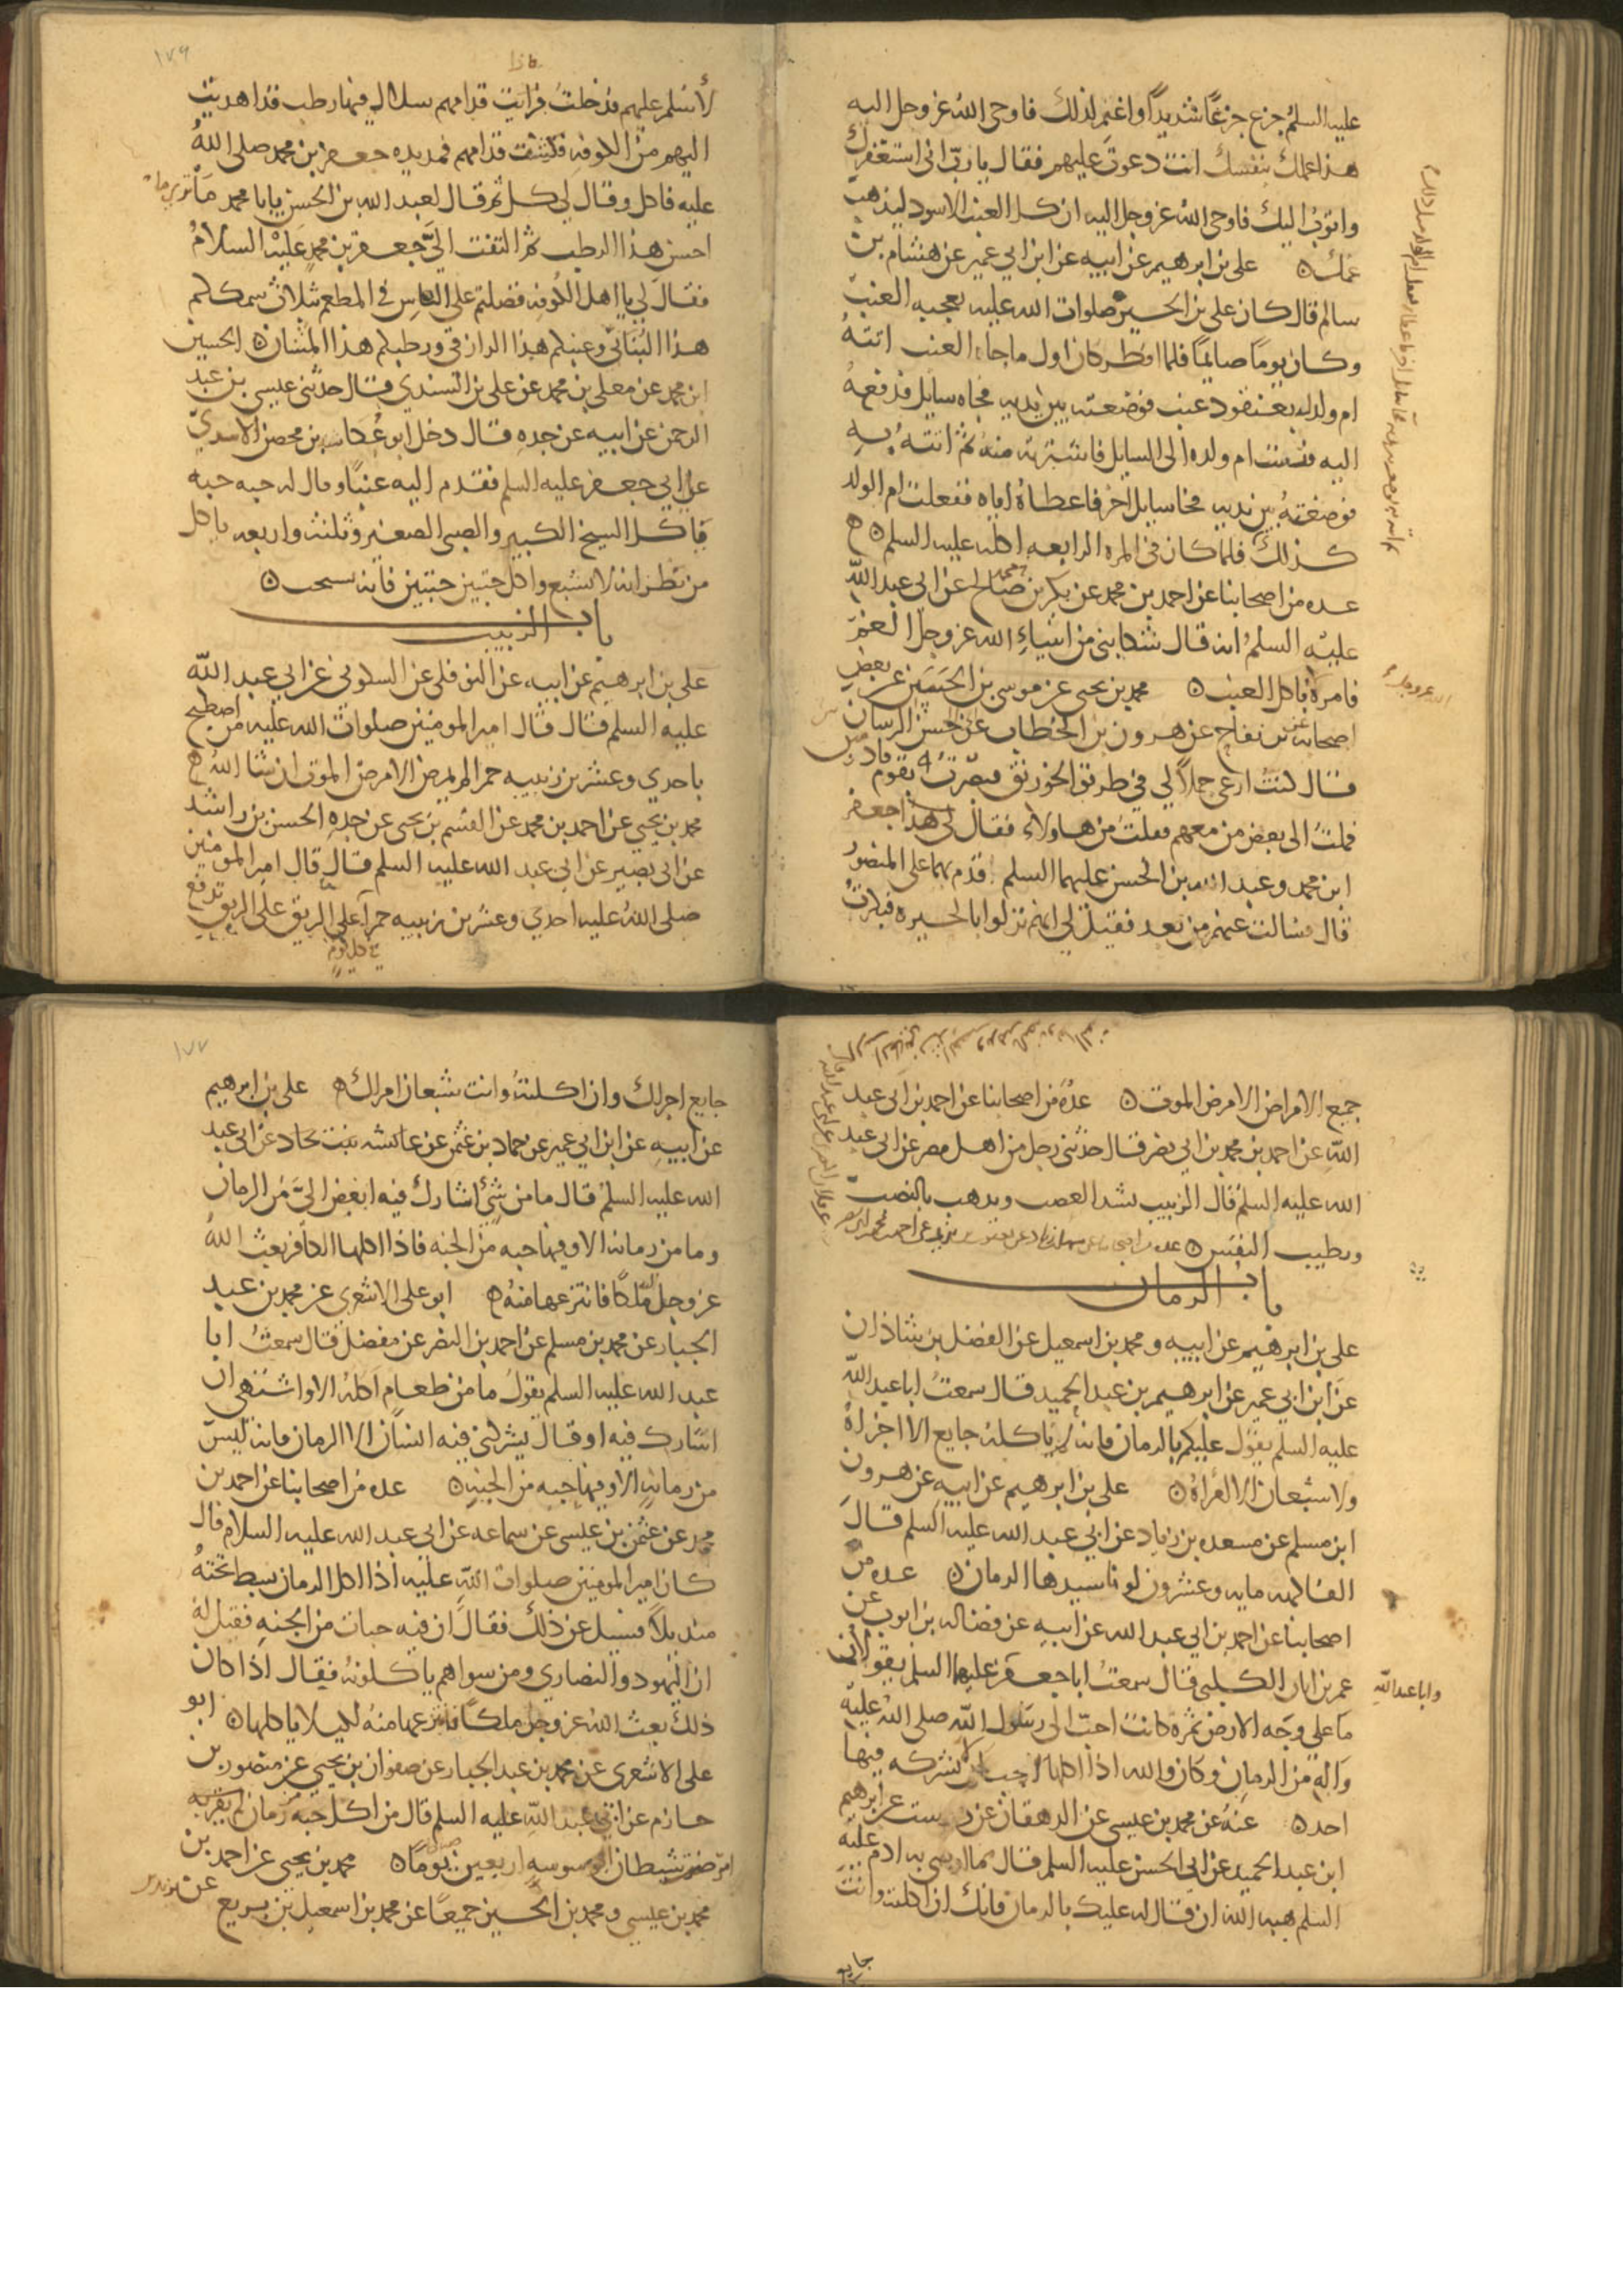 عليه السلم جزع جزعًا شديدًا واغتم لذلك فاوحى الله عز وجل اليه
هذا عملك بنفسك انت دعوت عليهم فقال يا ربّ انى استغفرك
واتوبُ اليك فاوحى الله عز وجل اليه ان كل العنب الاسود ليذهب
غمك ۞ على بن ابرهيم عن ابيه عن ابن ابي عمير عن هشام بن
سالم قال كان على بن الحسين صلوات الله عليه يعجبه العنب
وكان يومًا صايمًا فلما افطر كان اول ما جاء العنب اتتهُ
ام ولد له بعنقود عنب فوضعته بين يديه فجاه سايل فدفعهُ
اليه فدست ام ولده الى السايل فاشترته منه ثم اتتهُ به
فوضعتهُ بين يديه فجا سايل اخر فاعطاهُ اياه ففعلت ام الولد
كذلك فلما كان فى المره الرابعه اكله عليه السلم ۞
عده من اصحابنا عن احمد بن محمد عن بكر بن صالح عن ابى عبد الله
عليه السلمُ انه قال شكا نبى من انبياءِ الله عز وجلّ الغمّ
فامرهُ باكل العنب ۞ محمد بن يحيى عن موسى بن الحسن عن بعض
اصحابه عن بن بقاح عن هرون بن الخطاب عن ابى الحسن الرسان
قال كنتُ ارعى جمالاً لي في طريق الخورنق فبصرتُ بقوم قادمين
فملتُ الى بعض من معهم فقلتُ من هاولاءِ فقال لى هذا جعفر
ابن محمد وعبد الله بن الحسن عليهما السلم قُدم بهما على المنصور
قال فسالت عنهم من بعد فقيل لي انهم نزلوا بالحيره فبكرتُ
١٧٦
لأُسلم عليهم فدخلتُ فرايت قدامهم سلال فيها رطب قد اهديت
اليهم من الكوفه فكشفت قدامهم فمد يده جعفر بن محمد صلى اللهُ
عليه فاكل وقال لي كل ثم قال لعبد الله بن الحسن يا با محمد ما
احسن هذا الرطب ثم التفت الىَّ جعفر بن محمدٍ عليه السلامُ
فقال لي يا اهل الكوفه فضلتم على الناس في المطعم بثلاث سمككم
هذا البُنَاني وعنبكم هذا الرازقي ورطبكم هذا المشان ۞ الحسين
ابن محمد عن معلى بن محمد عن على بن السندي قال حدثنى عيسى بن عبد
الرحمن عن ابيه عن جده قال دخل ابو عُكاشه بن محصن الاسديّ
على ابي جعفر عليه السلم فقدم اليه عنبًا وقال له حبه حبه
ياكل الشيخ الكبير والصبى الصغير وثلثه واربعه ياكل
من يظن انه لا يشبع واكل حبتين حبتين فانه يستحب ۞
باب الزبيب
على بن ابرهيم عن ابيه عن النوفلى عن السكوني عن ابي عبد الله
عليه السلم قال قال امير المومنين صلوات الله عليه من اصطبح
باحدي وعشرين زبيبه حمرا لم يمرض الا مرض الموت ان شا الله ۞
محمد بن يحيى عن احمد بن محمد عن القسم بن يحيى عن جده الحسن بن راشد
عن ابى بصير عن ابى عبد الله عليه السلم قال قال امير المومنين
صلى اللهُ عليه احدي وعشرين زبيبه حمرآ على الريق تدفع
في كل يوم
جميع الامراض الا مرض الموت ۞ عدهُ من اصحابنا عن احمد بن ابى عبد
الله عن احمد بن محمد بن ابي نصر قال حدثنى رجل من اهل مصر عن ابى عبد
الله عليه السلم قال الزبيب يشد العصب ويذهب بالنصب
ويطيب النفس ۞
باب الرمان
على بن ابرهيم عن ابيه ومحمد بن اسمعيل عن الفضل بن شاذان
عن ابن ابي عمير عن ابرهيم بن عبد الحميد قال سمعتُ ابا عبد الله
عليه السلم يقول عليكم بالرمان فانه لم ياكله جايع الا اجزاهُ
ولا شبعان الا امراهُ ۞ على بن ابرهيم عن ابيه عن هرون
ابن مسلم عن مسعده بن زياد عن ابي عبد الله عليه السلم قال
الفاكهه مايه وعشرون لونا سيدها الرمان ۞ عده من
اصحابنا عن احمد بن ابي عبد الله عن ابيه عن فضاله بن ايوب عن
عمر بن ابان الكلبى قال سمعتُ ابا جعفر عليهما السلم يقولان
وابا عبد الله
ما على وجه الارض ثمرة كانت احبّ الى رسول الله صلى الله عليه
وآله من الرمان وكان والله اذا اكلها احب ان لا يشركه فيها
احد ۞ عنهُ عن محمد بن عيسى عن الدهقان عن درست عن ابرهيم
ابن عبد الحميد عن ابي الحسن عليه السلم قال مما اوصى به ادم عليه
السلم هبه الله ان قال له عليك بالرمان فانك ان اكلته وانت
جايع
١٧٧
جايع اجزاك وان اكلتهُ وانت شبعان امراك ۞ على بن ابرهيم
عن ابيه عن ابن ابي عمير عن حماد بن عثمن عن عن ابى عبد
الله عليه السلمُ قال ما من شئٍ اشارك فيه ابغض الىَّ من الرمان
وما من رمانه الا وفيها حبه من الجنه فاذا اكلها الكافر بعث اللهُ
عز وجل ملكًا فانتزعها منهُ ۞ ابو على الاشعرى عن محمد بن عبد
الجبار عن محمد بن مسلم عن احمد بن النضر عن مفضل قال سمعتُ ابا
عبد الله عليه السلم يقولُ ما من طعام آكلهُ الا وانا اشتهى ان
اشارك فيه او قال يشركنى فيه انسان الا الرمان فانه ليس
من رمانهٍ الا وفيها حبه من الجنه ۞ عده من اصحابنا عن احمد بن
محمد عن عثمن بن عيسى عن سماعه عن ابى عبد الله عليه السلام قال
كان امير المومنين صلوات الله عليه اذا اكل الرمان بسط تحتهُ
منديلاً فسيل عن ذلك فقال ان فيه حبات من الجنهِ فقيل لهُ
ان اليهود والنصاري ومن سواهم ياكلونهُ فقال اذا كان
ذلك بعث اللهُ عز وجل ملكًا فانتزعها منهُ لكيلا ياكلها ۞ ابو
على الاشعرى عن محمد بن عبد الجبار عن صفوان بن يحيى عن منصور بن
حازم عن ابى عبد الله عليه السلم قال من اكل حبه من رمان
امرضت شيطان الوسوسه اربعين يومًا ۞ محمد بن يحيى عن احمد بن
محمد بن عيسى ومحمد بن الحسين جميعًا عن محمد بن اسمعيل بن بزيع عن